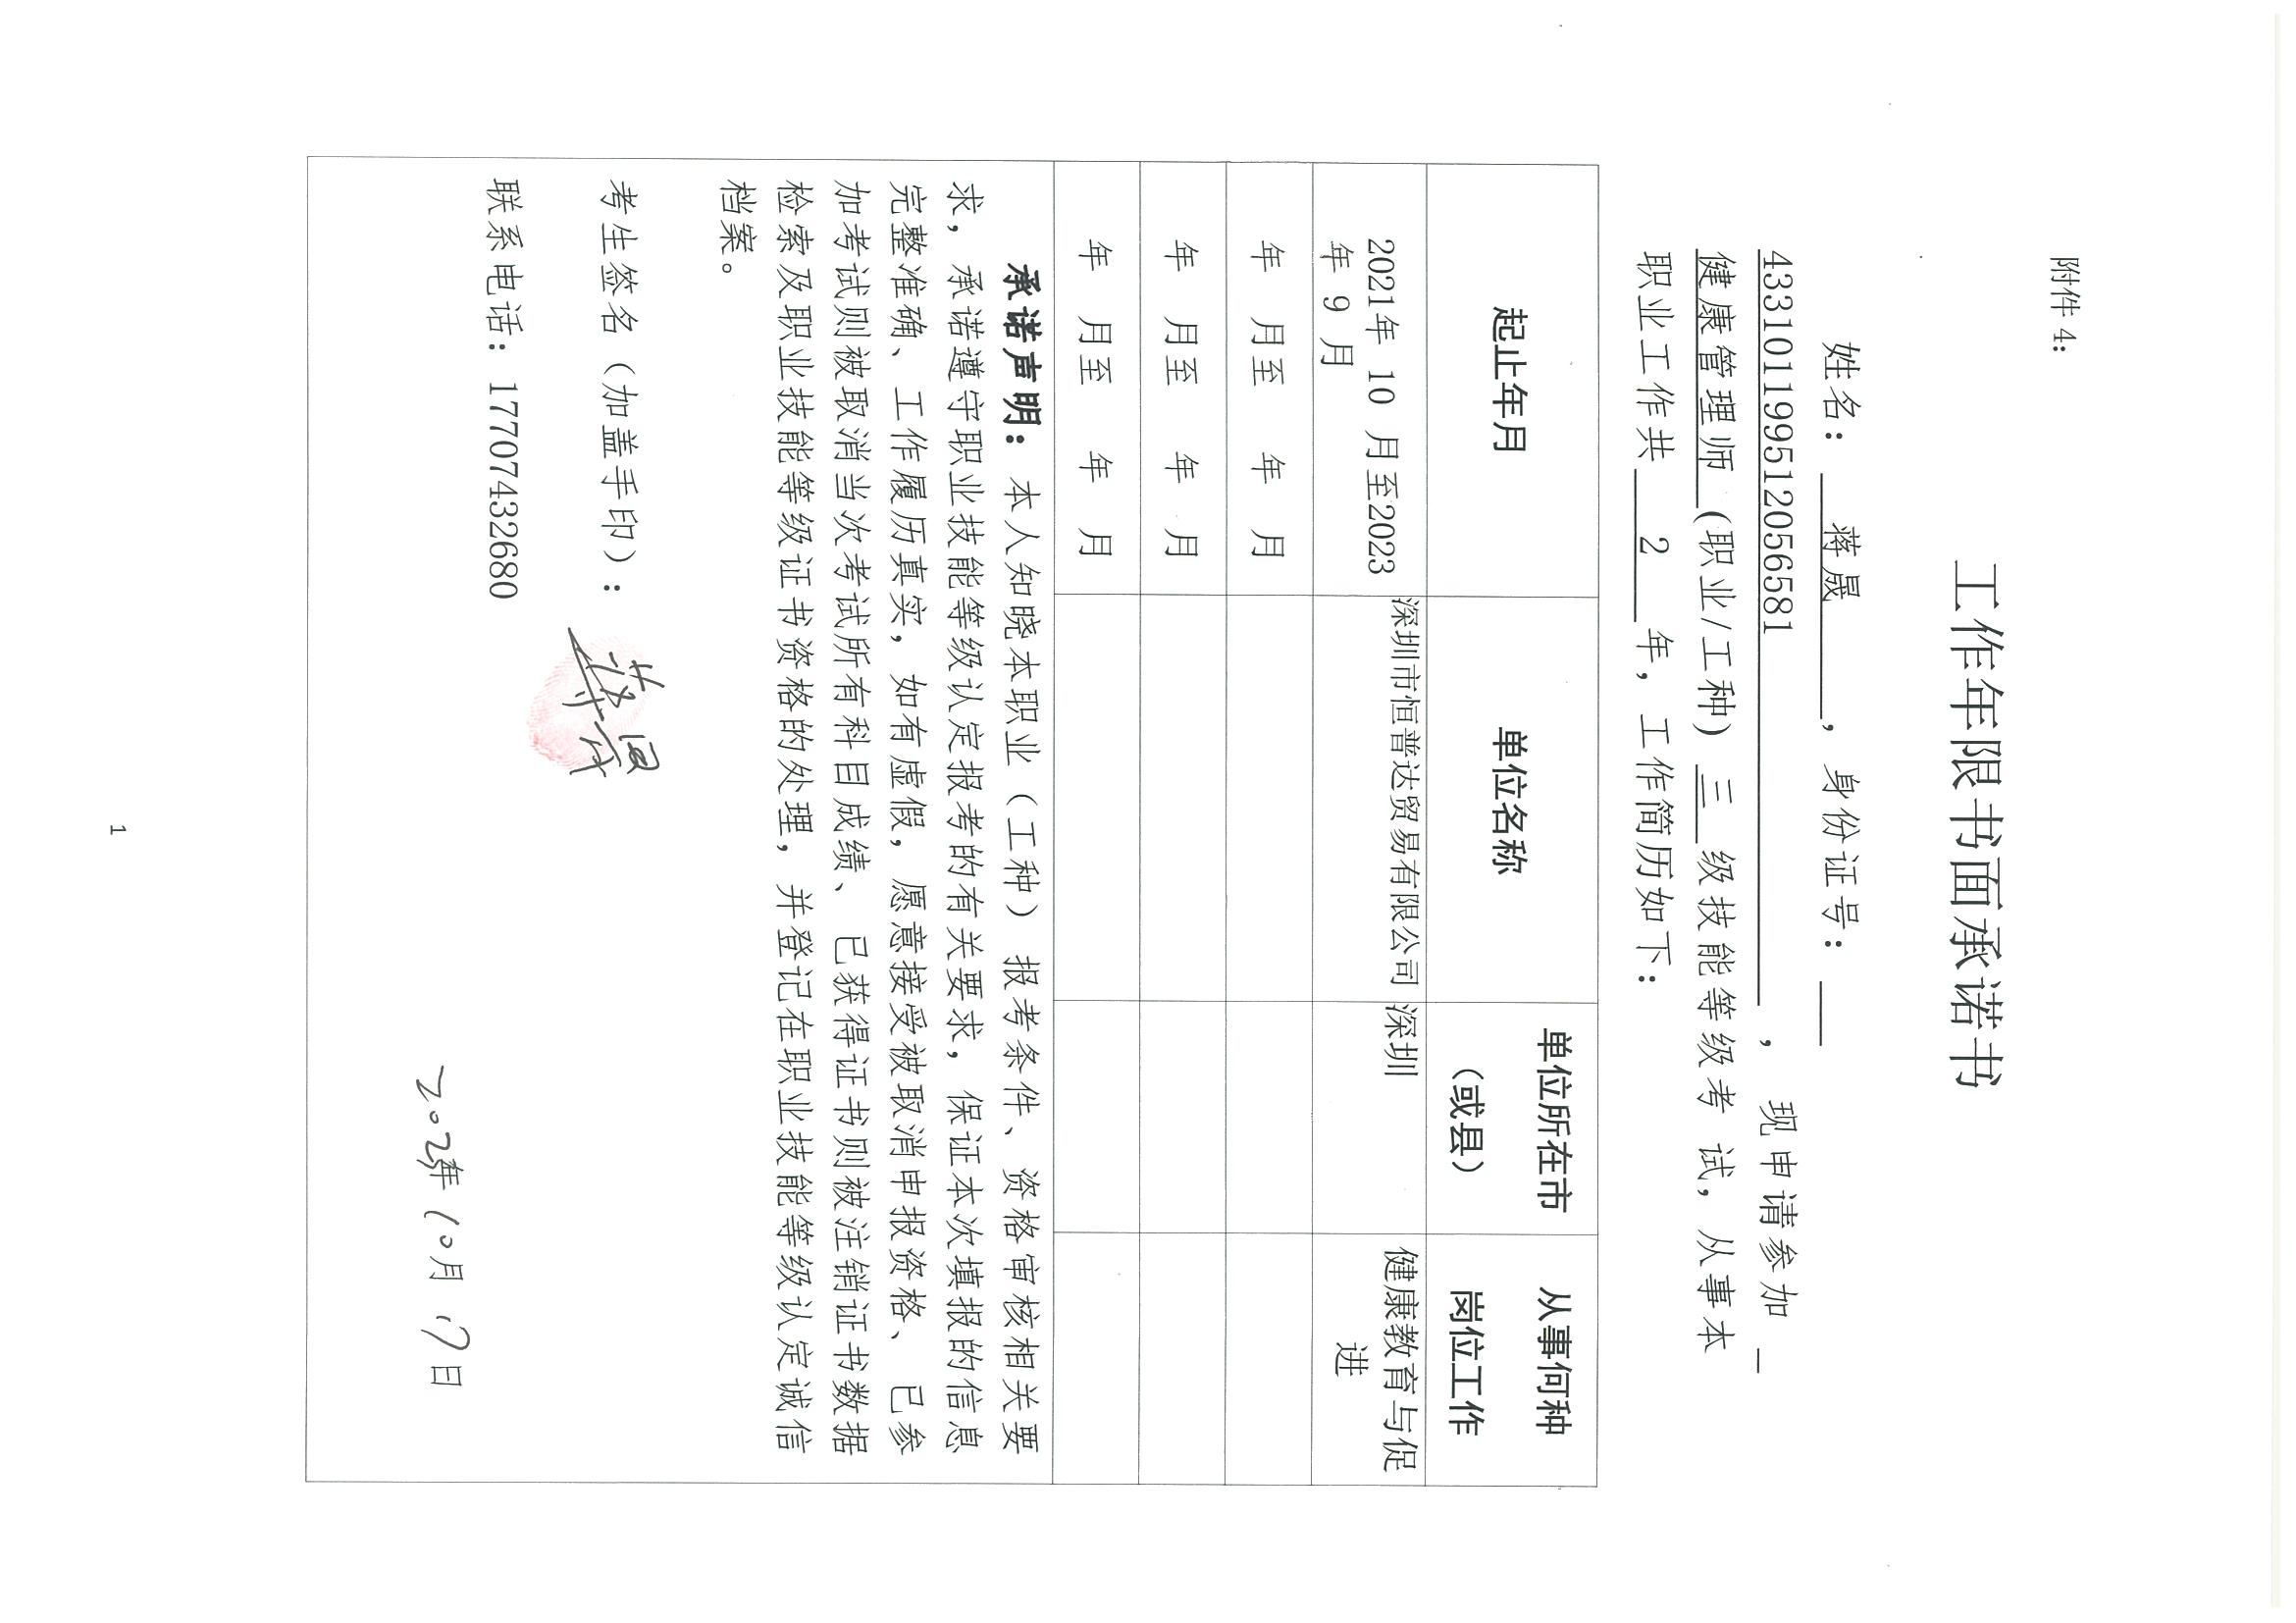 附件 4:
工作年限书面承诺书
姓名： 蒋晟 ，身份证号：
433101199512056581 ，现申请参加
健康管理师 (职业/工种) 三 级技能等级考 试，从事本
职业工作共 2 年，工作简历如下：
起止年月 单位名称 单位所在市（或县） 从事何种岗位工作
2021年 10 月至2023年 9 月 深圳市恒普达贸易有限公司 深圳 健康教育与促进
年 月至 年 月
年 月至 年 月
年 月至 年 月
承诺声明：本人知晓本职业（工种）报考条件、资格审核相关要
求，承诺遵守职业技能等级认定报考的有关要求，保证本次填报的信息
完整准确、工作履历真实，如有虚假，愿意接受被取消申报资格、已参
加考试则被取消当次考试所有科目成绩、已获得证书则被注销证书数据
检索及职业技能等级证书资格的处理，并登记在职业技能等级认定诚信
档案。
考生签名（加盖手印）：蒋晟
联系电话：17707432680
2023年 10月 17日
1